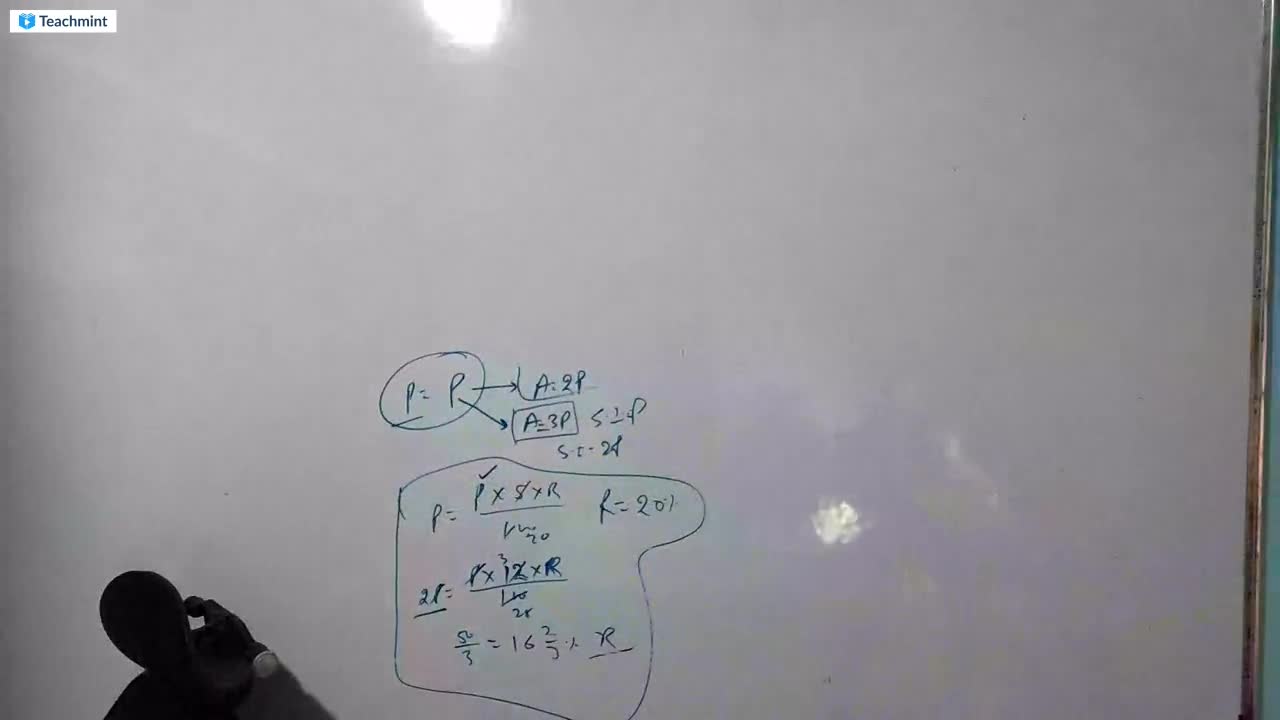 Teachmint
P = P → A = 2P
A = 3P S.I = P
S.I = 2P
P = P × 5 × R R = 20%
100 20
2P = P × 12 × R
3
100
25
50/3 = 16 2/3 % R